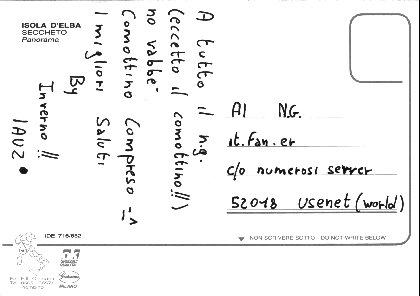 ISOLA D'ELBA
SECCHETO
Panorama
A tutto il n.g.
(eccetto il comottino!!)
no vabbè
Comottino Compreso =^
I migliori Saluti
By
Inverno!!
IAUZ
Al N.G.
it.fan.er
c/o numerosi server
52018 Usenet (world)
IDE 716/682
NON SCRIVERE SOTTO - DO NOT WRITE BELOW
MILANO